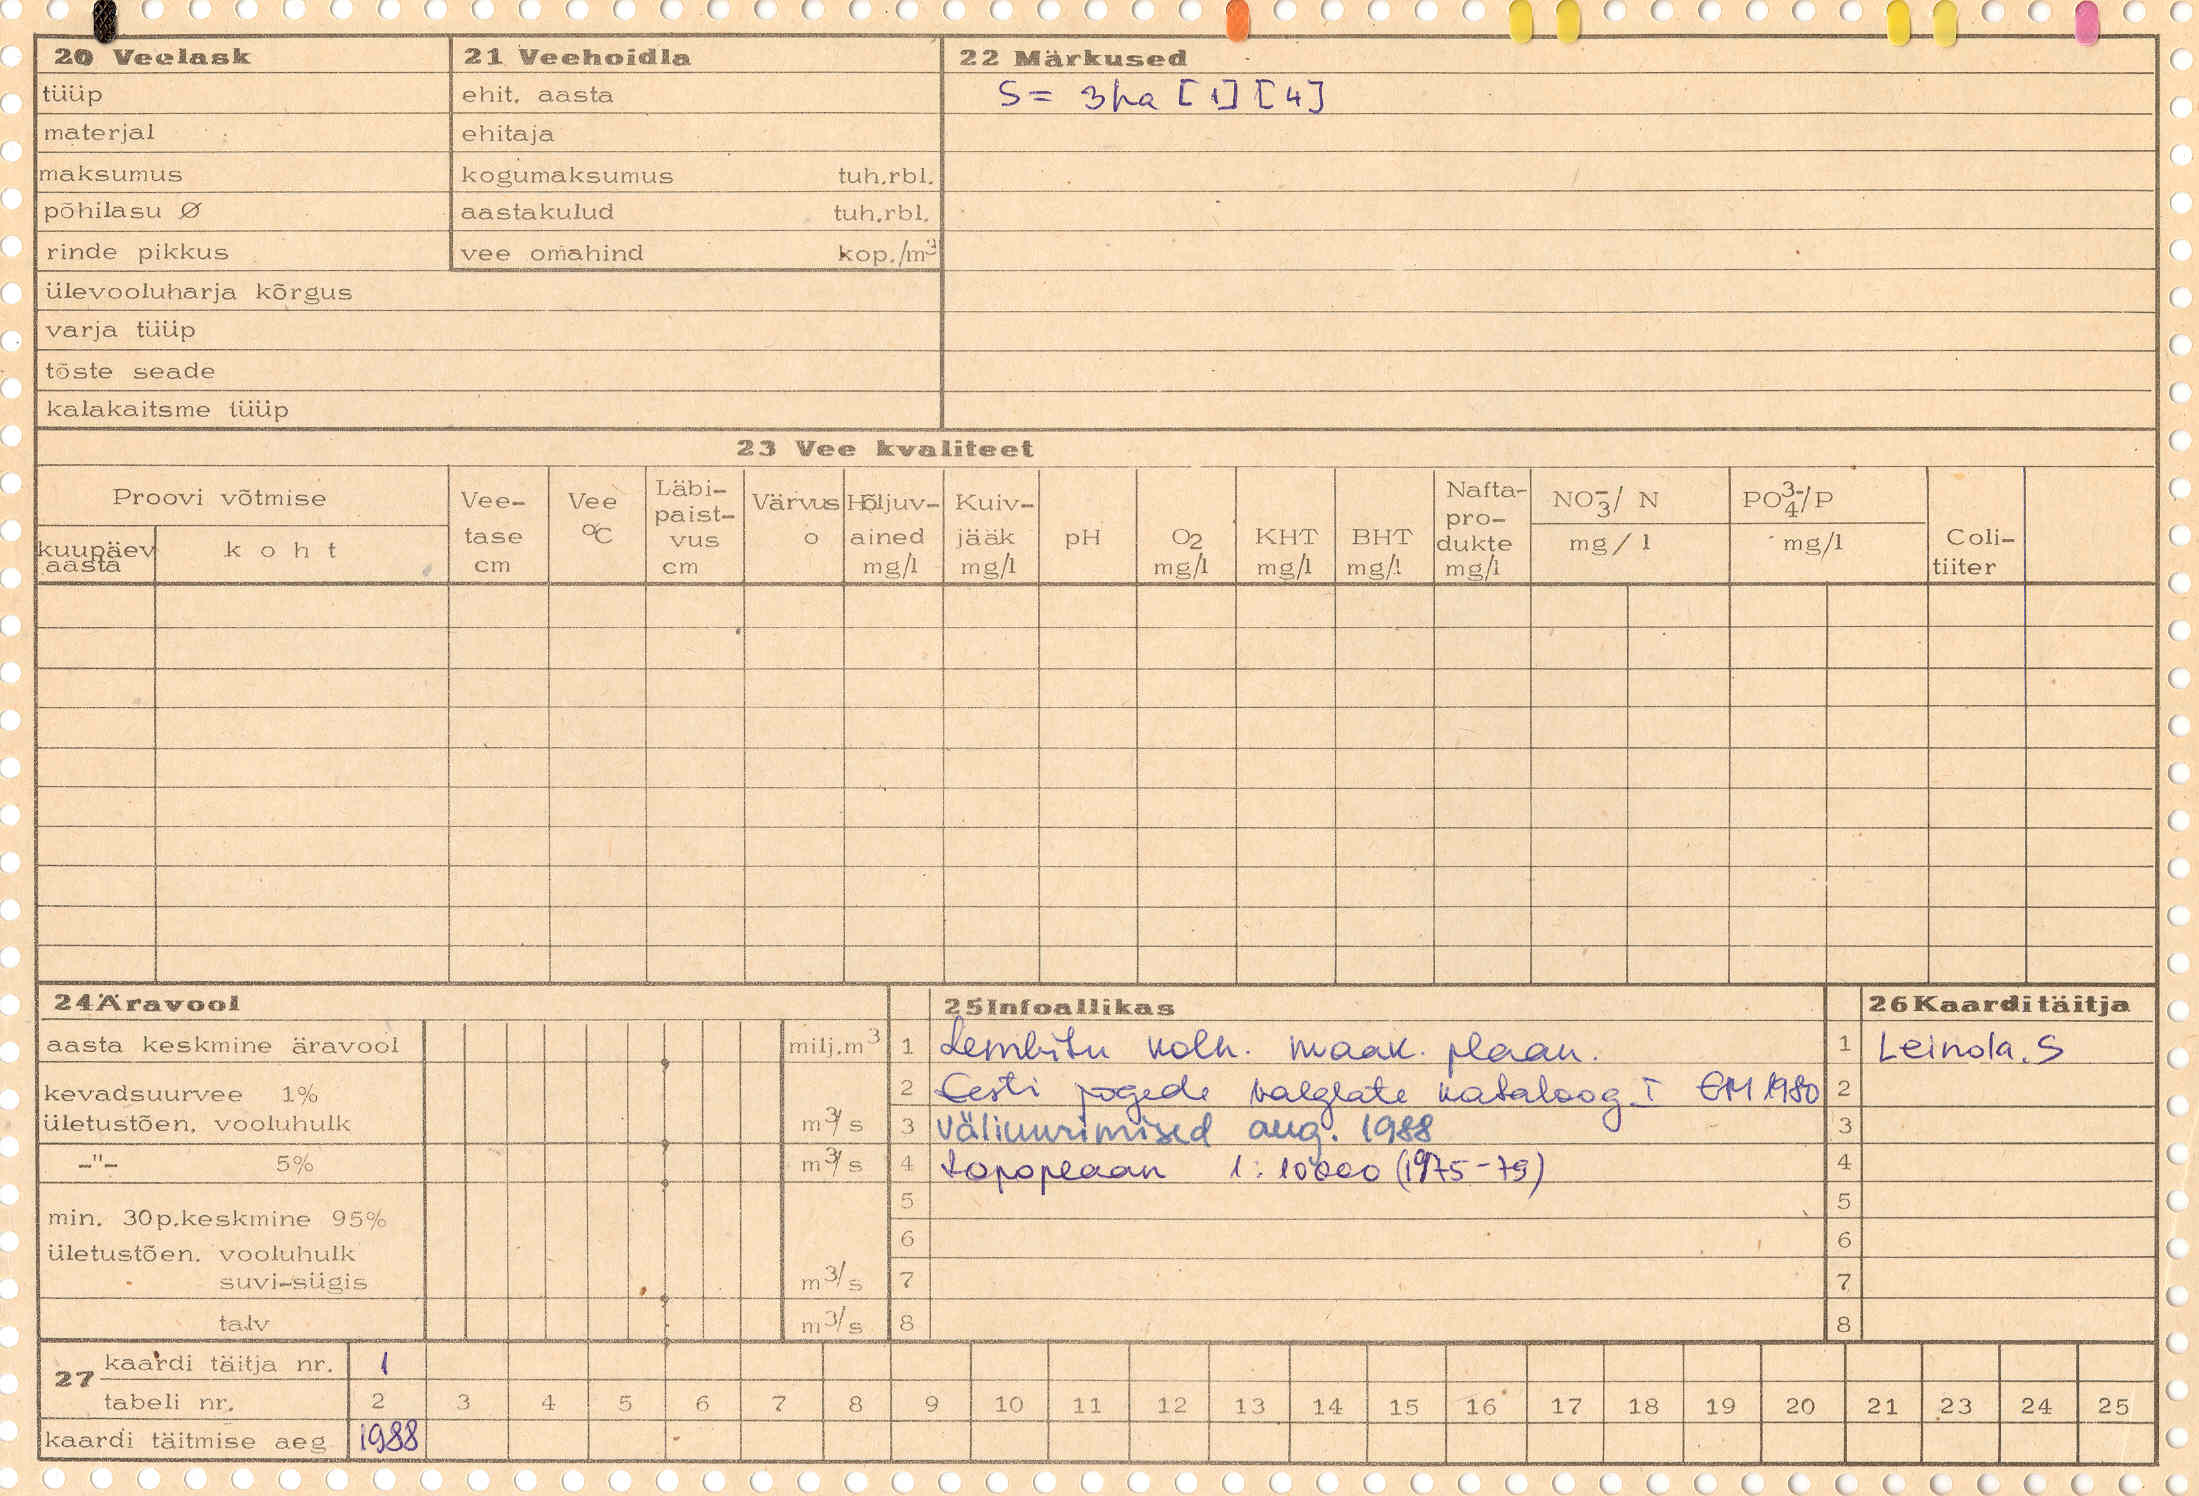 20 Veelask
tüüp
materjal
maksumus
põhilasu Ø
rinde pikkus
ülevooluharja kõrgus
varja tüüp
tõste seade
kalakaitsme tüüp
21 Veehoidla
ehit. aasta
ehitaja
kogumaksumus tuh.rbl.
aastakulud tuh.rbl.
vee omahind kop./m³
22 Märkused
S = 3ha [1] [4]
23 Vee kvaliteet
Proovi võtmise
kuupäev
aasta
koht
Vee-
tase
cm
Vee
°C
Läbi-
paist-
vus
cm
Värvus
o
Hõljuv-
ained
mg/l
Kuiv-
jääk
mg/l
pH
O₂
mg/l
KHT
mg/l
BHT
mg/l
Nafta-
pro-
dukte
mg/l
NO₃⁻/ N
mg/l
PO₄³⁻/P
mg/l
Coli-
tiiter
24 Äravool
aasta keskmine äravool milj.m³
kevadsuurvee 1%
ületustõen. vooluhulk m³/s
-"- 5% m³/s
min. 30p.keskmine 95%
ületustõen. vooluhulk
suvi-sügis m³/s
talv m³/s
25 Infoallikas
1 Lembitu kolh. maak. plaan.
2 Eesti jõgede valglate kataloog I EM 1980
3 Väliuurimised aug. 1988
4 topoplaan 1:10000 (1975-79)
5
6
7
8
26 Kaardi täitja
1 Leinola. S
2
3
4
5
6
7
8
27
kaardi täitja nr. 1
tabeli nr. 2 3 4 5 6 7 8 9 10 11 12 13 14 15 16 17 18 19 20 21 23 24 25
kaardi täitmise aeg 1988